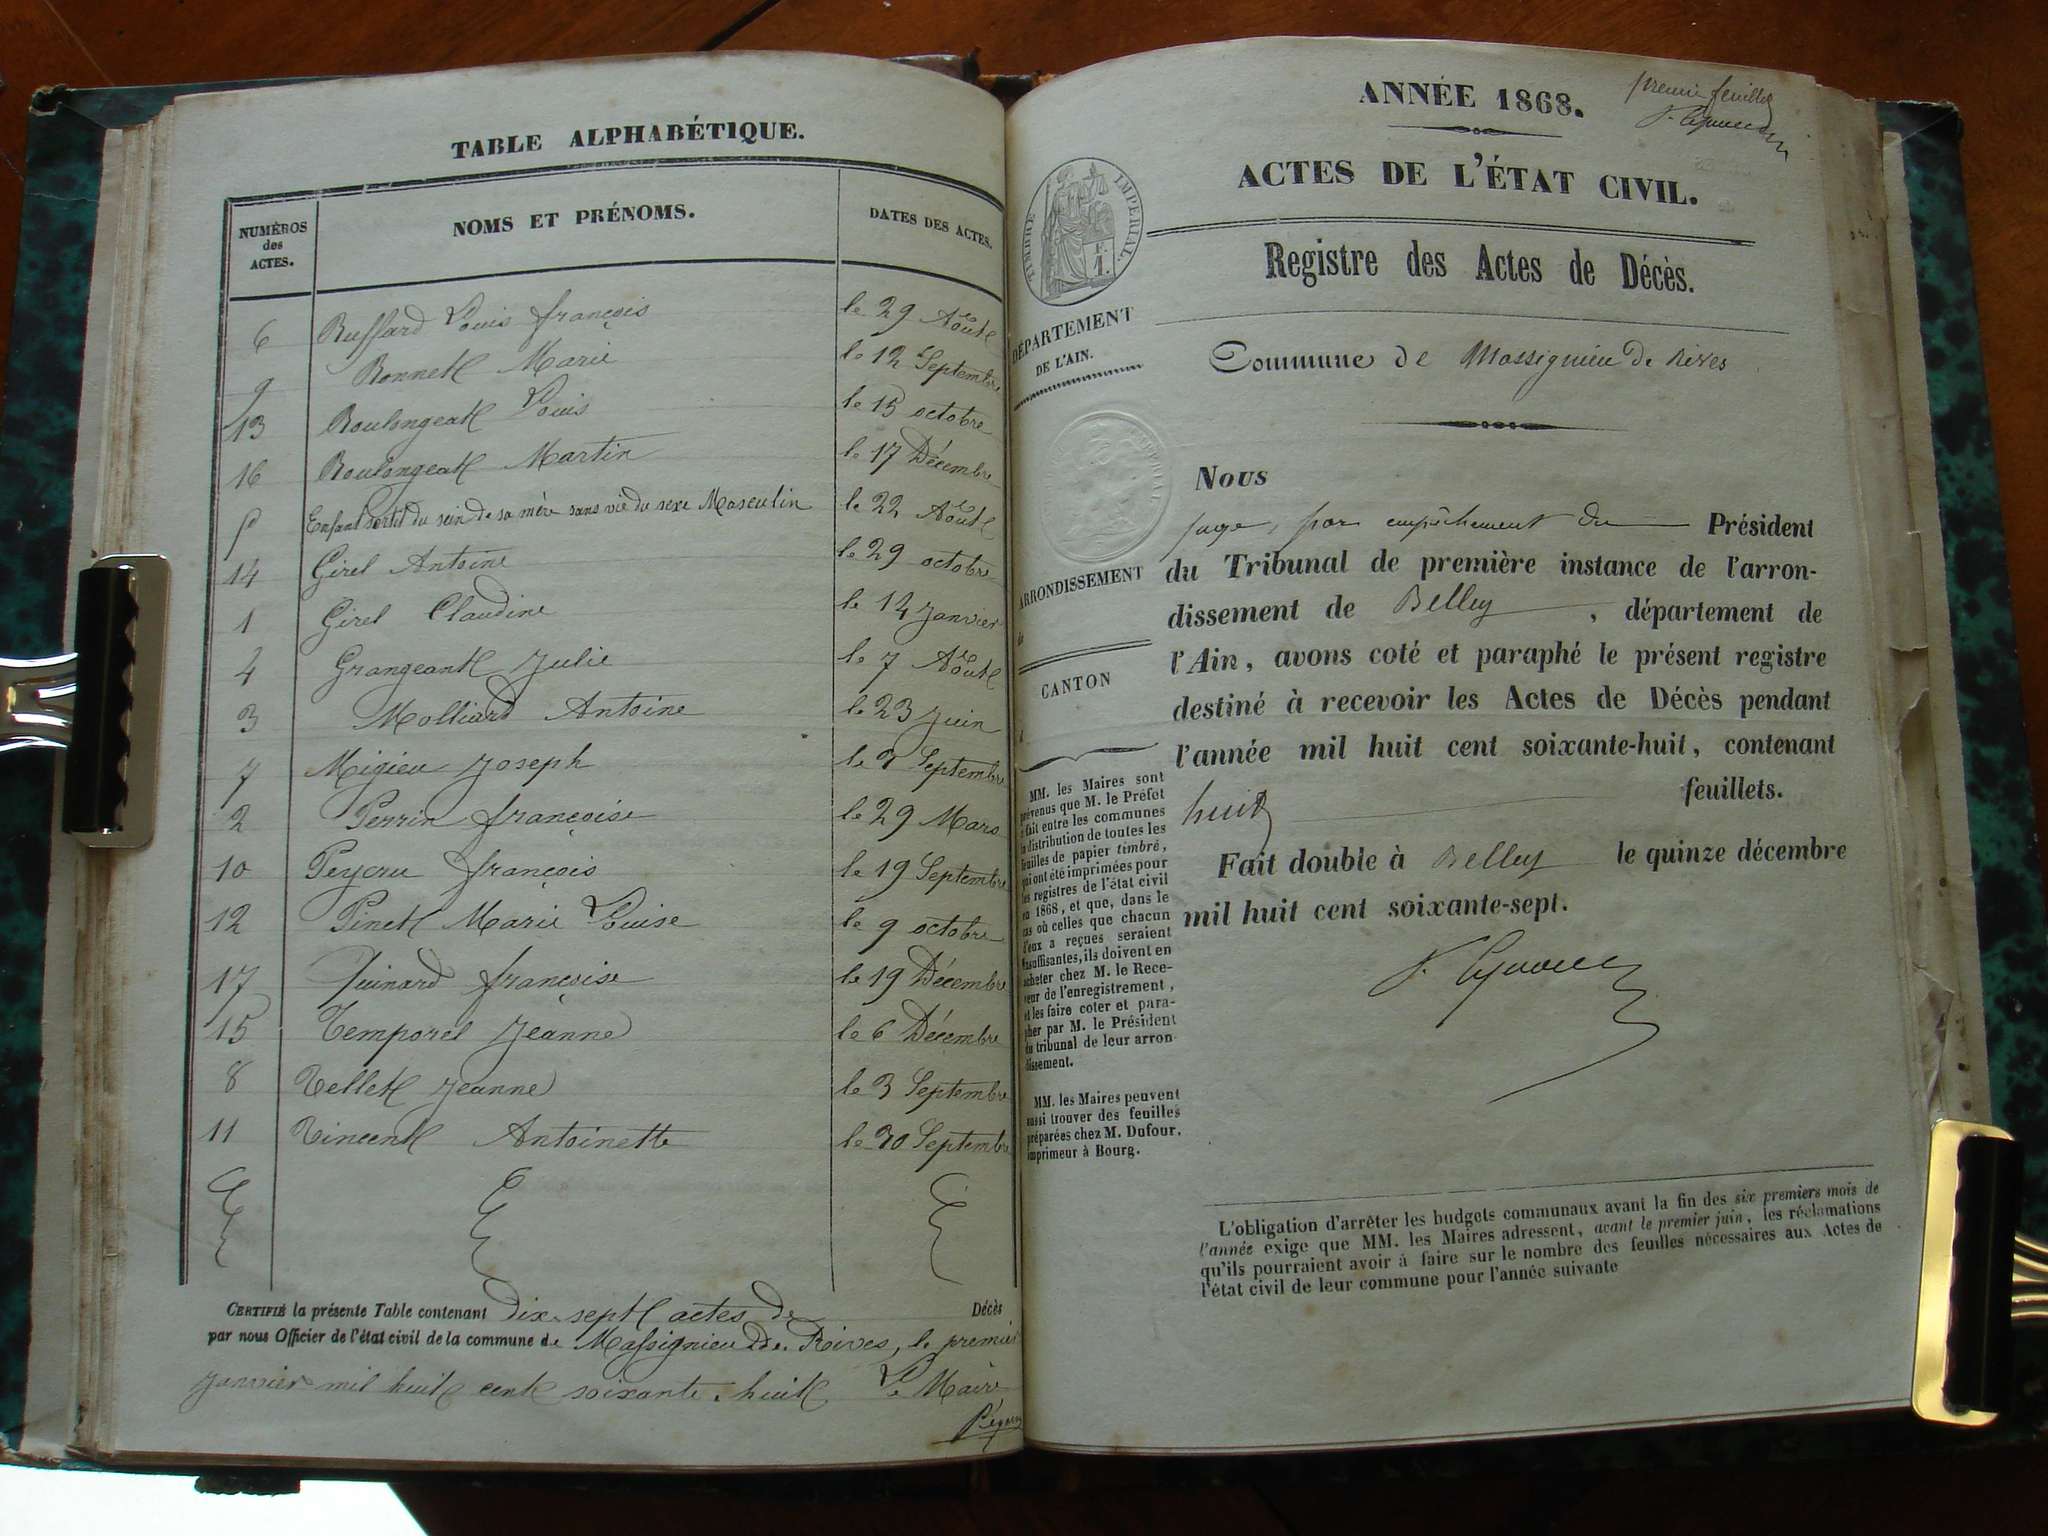 TABLE ALPHABÉTIQUE.
NUMÉROS
des
ACTES.
NOMS ET PRÉNOMS.
DATES DES ACTES.
6 Buffard Louis françois le 29 Août
9 Bonnet Marie le 12 Septembre
13 Boulongeat Louis le 15 octobre
16 Boulongeat Martin le 17 Décembre
5 Enfant sortit du sein de sa mère sans vie du sexe Masculin le 22 Août
14 Girel Antoine le 29 octobre
1 Girel Claudine le 14 janvier
4 Grangeant Julie le 7 Août
3 Molliard Antoine le 23 Juin
7 Migieu Joseph le Septembre
2 Perrin françoise le 29 Mars
10 Peycru françois le 19 Septembre
12 Pinet Marie Louise le 9 octobre
17 Quinard françoise le 19 Décembre
15 Temporel Jeanne le 6 Décembre
8 Vellet Jeanne le 3 Septembre
11 Vincent Antoinette le 30 Septembre
CERTIFIÉ la présente Table contenant Dix-sept actes de Décès
par nous Officier de l'état civil de la commune de Massignieu de Rives, le premier
janvier mil huit cent soixante-huit Le Maire
ANNÉE 1868.
premier feuillet
ACTES DE L'ÉTAT CIVIL.
TIMBRE IMPÉRIAL.
F.
1.
Registre des Actes de Décès.
DÉPARTEMENT
DE L'AIN.
Commune de Massignieu de Rives
Nous
juge, par empêchement du Président
du Tribunal de première instance de l'arron-
dissement de Belley, département de
l'Ain, avons coté et paraphé le présent registre
destiné à recevoir les Actes de Décès pendant
l'année mil huit cent soixante-huit, contenant
huit feuillets.
Fait double à Belley le quinze décembre
mil huit cent soixante-sept.
ARRONDISSEMENT
CANTON
MM. les Maires sont
prévenus que M. le Préfet
a fait entre les communes
la distribution de toutes les
feuilles de papier timbré,
qui ont été imprimées pour
les registres de l'état civil
en 1868, et que, dans le
cas où celles que chacun
d'eux a reçues seraient
insuffisantes, ils doivent en
acheter chez M. le Rece-
veur de l'enregistrement,
et les faire coter et para-
pher par M. le Président
du tribunal de leur arron-
dissement.
MM. les Maires peuvent
aussi trouver des feuilles
préparées chez M. Dufour,
imprimeur à Bourg.
L'obligation d'arrêter les budgets communaux avant la fin des six premiers mois de
l'année exige que MM. les Maires adressent, avant le premier juin, les réclamations
qu'ils pourraient avoir à faire sur le nombre des feuilles nécessaires aux Actes de
l'état civil de leur commune pour l'année suivante